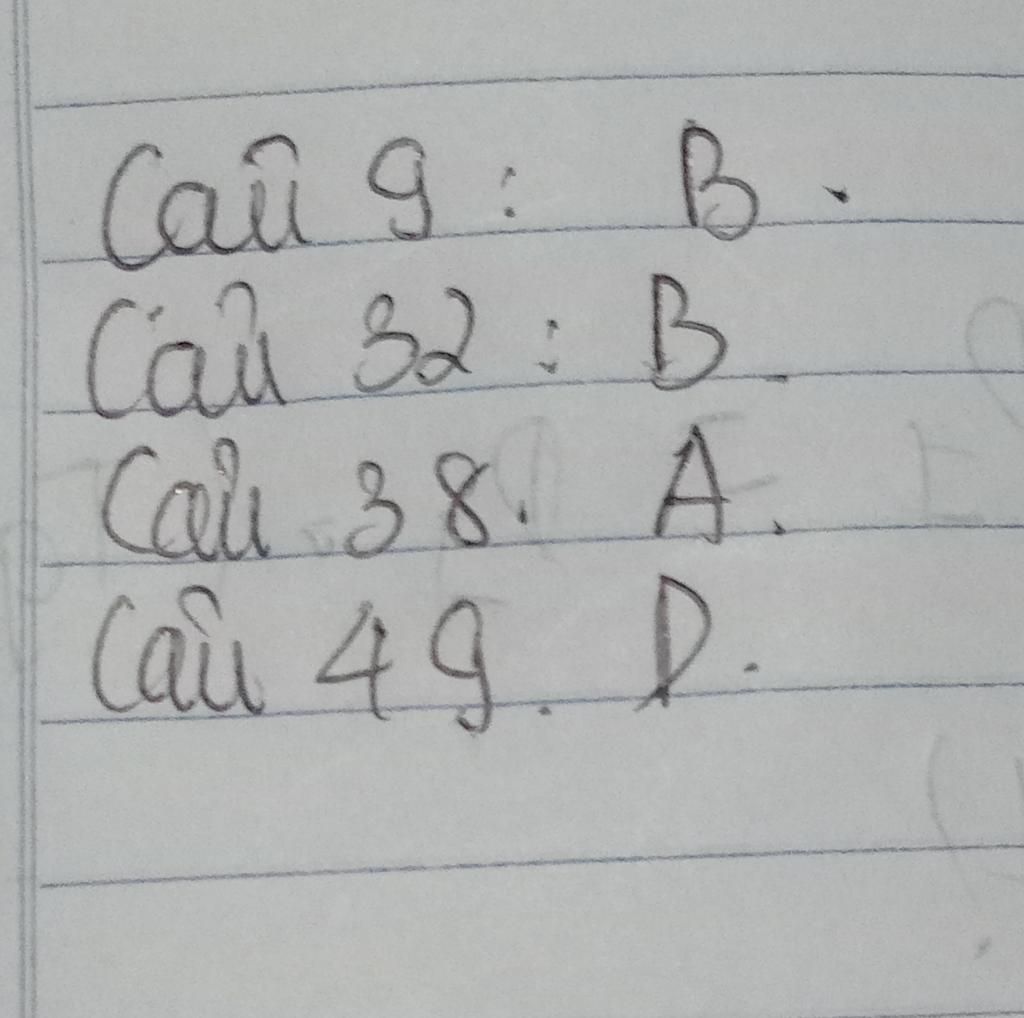 Câu 9: B.
Câu 32: B.
Câu 38. A.
Câu 49. D.